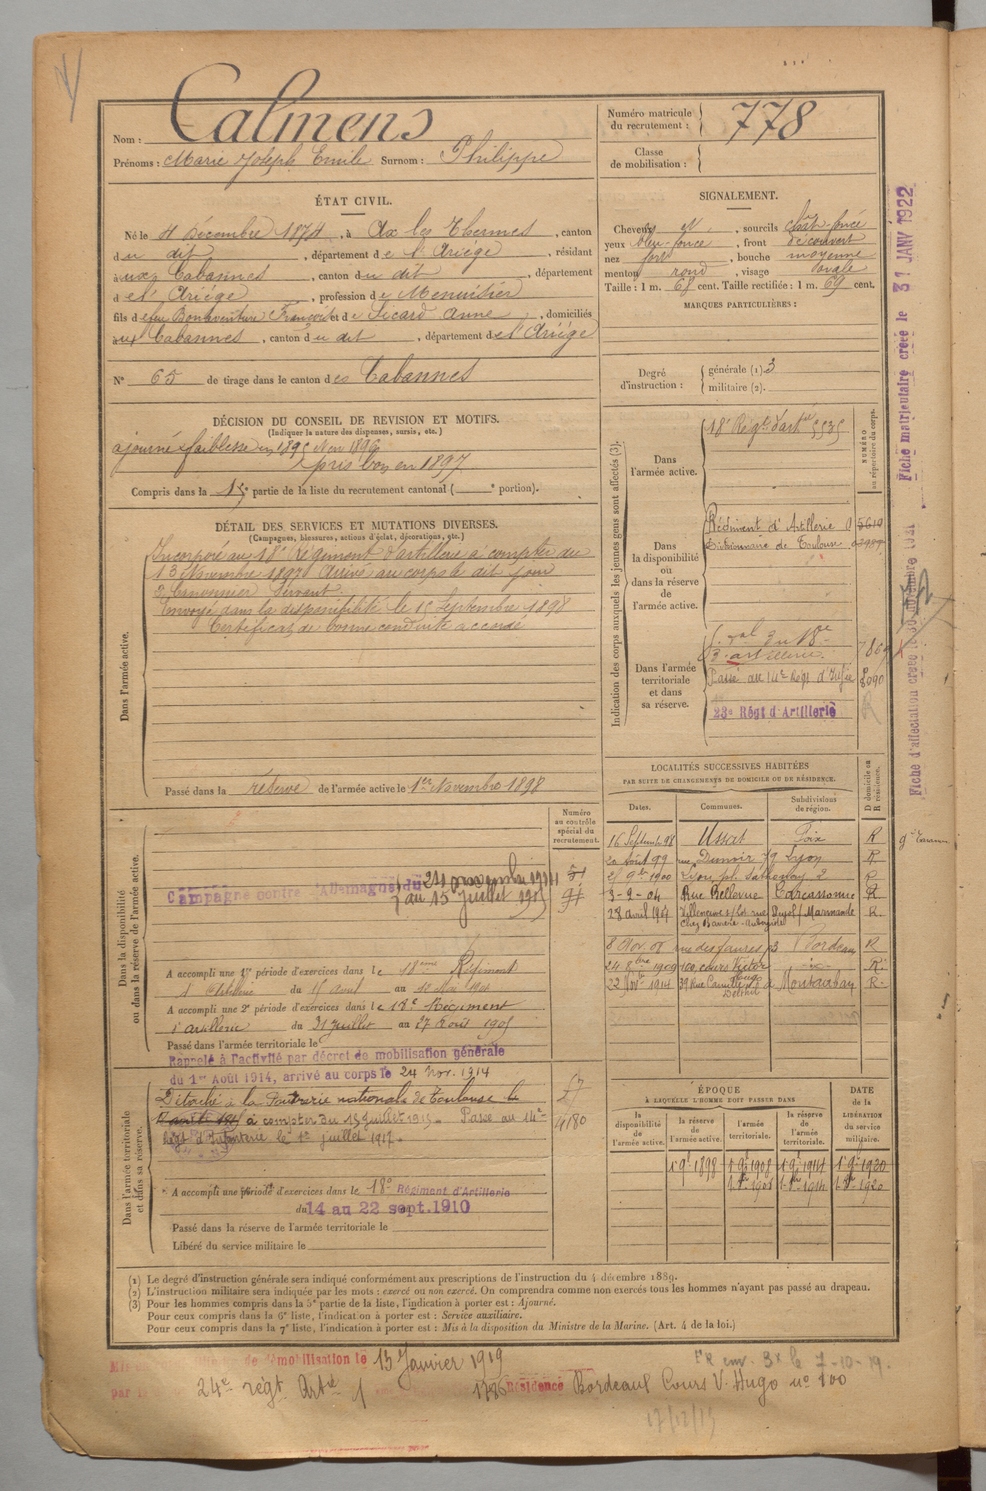 Nom : Calmens
Prénoms : Marie Joseph Emile Surnom : Philippe
Numéro matricule
du recrutement : 778
Classe
de mobilisation :
ÉTAT CIVIL.
Né le 4 Décembre 1874, à Ax les Thermes, canton
du dit, département de l'Ariége, résidant
aux Cabannes, canton du dit, département
de l'Ariége, profession de Menuisier
fils de feu Bonaventure François et de Sicard Anne, domiciliés
aux Cabannes, canton du dit, département de l'Ariége
N° 65 de tirage dans le canton des Cabannes
SIGNALEMENT.
Cheveux et, sourcils chat. foncé
yeux bleu-foncé, front découvert
nez fort, bouche moyenne
menton rond, visage ovale
Taille : 1 m. 68 cent. Taille rectifiée : 1 m. 69 cent.
MARQUES PARTICULIÈRES :
Degré
d'instruction : générale (1) 3
militaire (2).
DÉCISION DU CONSEIL DE REVISION ET MOTIFS.
(Indiquer la nature des dispenses, sursis, etc.)
ajourné faiblesse en 1895 et en 1896
pris bon en 1897
Compris dans la 1re partie de la liste du recrutement cantonal ( e portion).
DÉTAIL DES SERVICES ET MUTATIONS DIVERSES.
(Campagnes, blessures, actions d'éclat, décorations, etc.)
Dans l'armée active.
Incorporé au 18e Régiment d'artillerie à compter du
13 Novembre 1897. Arrivé au corps le dit jour
2e Canonnier Servant.
Envoyé dans la disponibilité le 15 Septembre 1898
Certificat de bonne conduite accordé
Passé dans la réserve de l'armée active le 1er Novembre 1898
Indication des corps auxquels les jeunes gens sont affectés (3).
NUMÉRO
au répertoire du corps.
Dans
l'armée active.
18e Régt d'artie 5535
Dans
la disponibilité
ou
dans la réserve
de
l'armée active.
Régiment d'Artillerie
de Toulouse
Dans l'armée
territoriale
et dans
sa réserve.
artillerie
Passé au 14e Régt d'Infie
23e Régt d'Artillerie
Fiche matriculaire créée le 31 JANV 1922
Fiche d'affectation créée le 30 novembre 1921
LOCALITÉS SUCCESSIVES HABITÉES
PAR SUITE DE CHANGEMENTS DE DOMICILE OU DE RÉSIDENCE.
D domicile ou
R résidence.
Dates. Communes. Subdivisions
de région.
16 Septemb 98 Ussat Foix R
20 Août 99 rue Dumoir 79 Lyon R
21 9bre 1900 Lyon pl. Sathonay 2 R
3-2-04 Rue Bellevue Carcassonne R
28 avril 1904 Villeneuve s/Lot rue Marmande R.
8 Nov. 07 rue des faures 93 Bordeaux R
24 1909 100, cours Victor Hugo - id - R.
22 Novbre 1914 39 Rue Camille Delthil à Montauban R.
Dans la disponibilité
ou dans la réserve de l'armée active.
Numéro
au contrôle
spécial du
recrutement.
Campagne contre l'Allemagne du 24 novembre 1914
au 15 Juillet 1915
A accompli une 1re période d'exercices dans le 18ème Régiment
d'Artillerie du 15 avril au 12 Mai 1901
A accompli une 2e période d'exercices dans le 18e Régiment
d'artillerie du 31 juillet au 27 Août 1905
Passé dans l'armée territoriale le
Dans l'armée territoriale
et dans sa réserve.
Rappelé à l'activité par décret de mobilisation générale
du 1er Août 1914, arrivé au corps le 24 Nov. 1914
Détaché à la Poudrerie nationale de Toulouse le
à compter du 15 juillet 1915. Passé au 14e
Régt d'Infanterie le 1er juillet 1917.
4180
A accompli une période d'exercices dans le 18e Régiment d'Artillerie
du 14 au 22 sept. 1910
Passé dans la réserve de l'armée territoriale le
Libéré du service militaire le
ÉPOQUE
À LAQUELLE L'HOMME DOIT PASSER DANS
DATE
de la
LIBÉRATION
du service
militaire.
la
disponibilité
de
l'armée active.
la réserve
de
l'armée active.
l'armée
territoriale.
la réserve
de
l'armée
territoriale.
1 9bre 1898 1 9bre 1908 1 9bre 1914 1 9bre 1920
1 8bre 1908 1 8bre 1914 1 8bre 1920
(1) Le degré d'instruction générale sera indiqué conformément aux prescriptions de l'instruction du 4 décembre 1889.
(2) L'instruction militaire sera indiquée par les mots : exercé ou non exercé. On comprendra comme non exercés tous les hommes n'ayant pas passé au drapeau.
(3) Pour les hommes compris dans la 5e partie de la liste, l'indication à porter est : Ajourné.
Pour ceux compris dans la 6e liste, l'indication à porter est : Service auxiliaire.
Pour ceux compris dans la 7e liste, l'indication à porter est : Mis à la disposition du Ministre de la Marine. (Art. 4 de la loi.)
de démobilisation le 13 Janvier 1919
par 24e régt Artie Résidence Bordeaux Cours V. Hugo no 100
le 7-10-19.